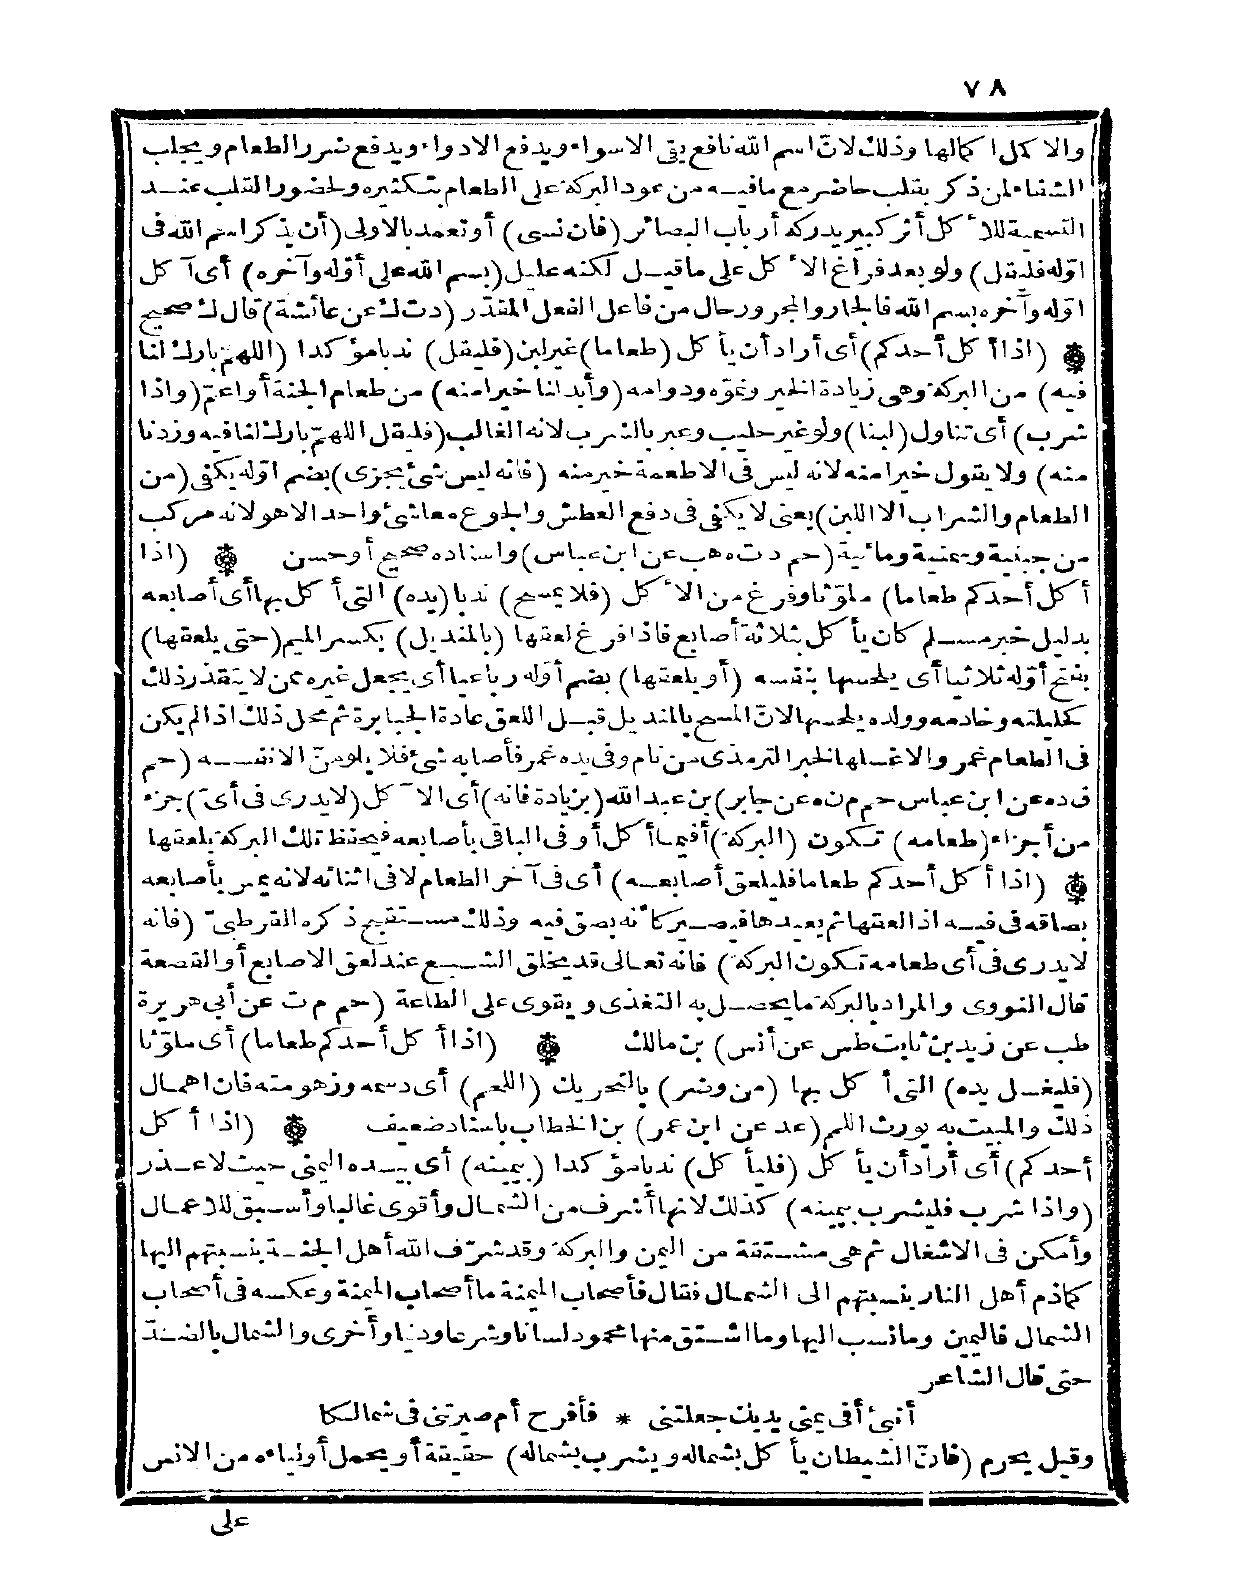 ٧٨
والا كمل اكمالها وذلك لانّ اسم الله نافع يقى الاسواء ويدفع الادواء ويدفع ضرر الطعام ويجلب
الشفاء لمن ذكر بقلب حاضر مع ما فيه من عود البركة على الطعام بتكثيره ولحضور القلب عند
التسمية للأ كل أثر كبير يدركه أرباب البصائر (فان نسى) أو تعمد بالاولى (أن يذكر اسم الله فى
اوّله فليقل) ولو بعد فراغ الأ كل على ما قيل لكنه عليل (بسم الله على أوّله وآخره) أى آ كل
اوّله وآخره بسم الله فالجار والمجرور حال من فاعل الفعل المقدّر (دت ك عن عائشة) قال ك صحيح
(اذا أ كل أحدكم) أى أراد أن يأ كل (طعاما) غير لبن (فليقل) ندبا مؤكدا (اللهمّ بارك لنا
فيه) من البركة وهى زيادة الخير ونموّه ودوامه (وأبدلنا خيرا منه) من طعام الجنة أو اعمّ (واذا
شرب) أى تناول (لبنا) ولو غير حليب وعبر بالشرب لانه الغالب (فليقل اللهمّ بارك لنا فيه وزدنا
منه) ولا يقول خيرا منه لانه ليس فى الاطعمة خير منه (فانه ليس شئ يجزى) بضم اوّله يكفى (من
الطعام والشراب الا اللبن) يعنى لا يكفى فى دفع العطش والجوع معا شئ واحد الا هو لانه مركب
من جبنية وسمنية ومائية (حم دت ه هب عن ابن عباس) واسناده صحيح أو حسن (اذا
أ كل أحدكم طعاما) ملوّثا وفرغ من الأ كل (فلا يمسح) ندبا (يده) التى أ كل بها أى أصابعه
بدليل خبر مسلم كان يأ كل بثلاثة أصابع فاذا فرغ لعقها (بالمنديل) بكسر الميم (حتى يلعقها)
بفتح أوّله ثلاثيا أى يلحسها بنفسه (أو يلعقها) بضم أوّله رباعيا أى يجعل غيره ممن لا يتقذر ذلك
كحليلته وخادمه وولده يلحسها لانّ المسح بالمنديل قبل اللعق عادة الجبابرة ثم محل ذلك اذا لم يكن
فى الطعام غمر والا غسلها لخبر الترمذى من نام وفى يده غمر فأصابه شئ فلا يلومنّ الا نفسه (حم
ق د ه عن ابن عباس حم م ن ه عن جابر) بن عبد الله (بزيادة فانه) أى الآ كل (لا يدرى فى أىّ) جزء
من أجزاء (طعامه) تكون (البركة) أفيما أ كل أو فى الباقى بأصابعه فيحفظ تلك البركة بلعقها
(اذا أ كل أحدكم طعاما فليلعق أصابعه) أى فى آخر الطعام لا فى اثنائه لانه يمس بأصابعه
بصاقه فى فيه اذا لعقها ثم يعيدها فيصير كأنه بصق فيه وذلك مستقبح ذكره القرطبىّ (فانه
لا يدرى فى أى طعامه تكون البركة) فانه تعالى قد يخلق الشبع عند لعق الاصابع أو القصعة
قال النووى والمراد بالبركة ما يحصل به التغذى ويقوى على الطاعة (حم م ت عن أبى هريرة
طب عن زيد بن ثابت طس عن أنس) بن مالك (اذا أ كل أحدكم طعاما) أى ملوّثا
(فليغسل يده) التى أ كل بها (من وضر) بالتحريك (اللحم) أى دسمه وزهومته فان اهمال
ذلك والمبيت به يورث اللمم (عد عن ابن عمر) بن الخطاب باسناد ضعيف (اذا أ كل
أحدكم) أى أراد أن يأ كل (فليأ كل) ندبا مؤكدا (بيمينه) أى بيده اليمنى حيث لا عذر
(واذا شرب فليشرب بيمينه) كذلك لانها أشرف من الشمال وأقوى غالبا وأسبق للاعمال
وأمكن فى الاشغال ثم هى مشتقة من اليمن والبركة وقد شرّف الله أهل الجنة بنسبتهم اليها
كما ذم أهل النار بنسبتهم الى الشمال فقال فأصحاب الميمنة ما أصحاب الميمنة وعكسه فى أصحاب
الشمال فاليمين وما نسب اليها وما اشتق منها محمود لسانا وشرعا ودنيا وأخرى والشمال بالضدّ
حتى قال الشاعر
أنبئ أفى يمنى يديك جعلتنى * فأفرح أم صيرتنى فى شمالكا
وقيل يحرم (فانّ الشيطان يأ كل بشماله ويشرب بشماله) حقيقة أو يحمل أولياءه من الانس
على